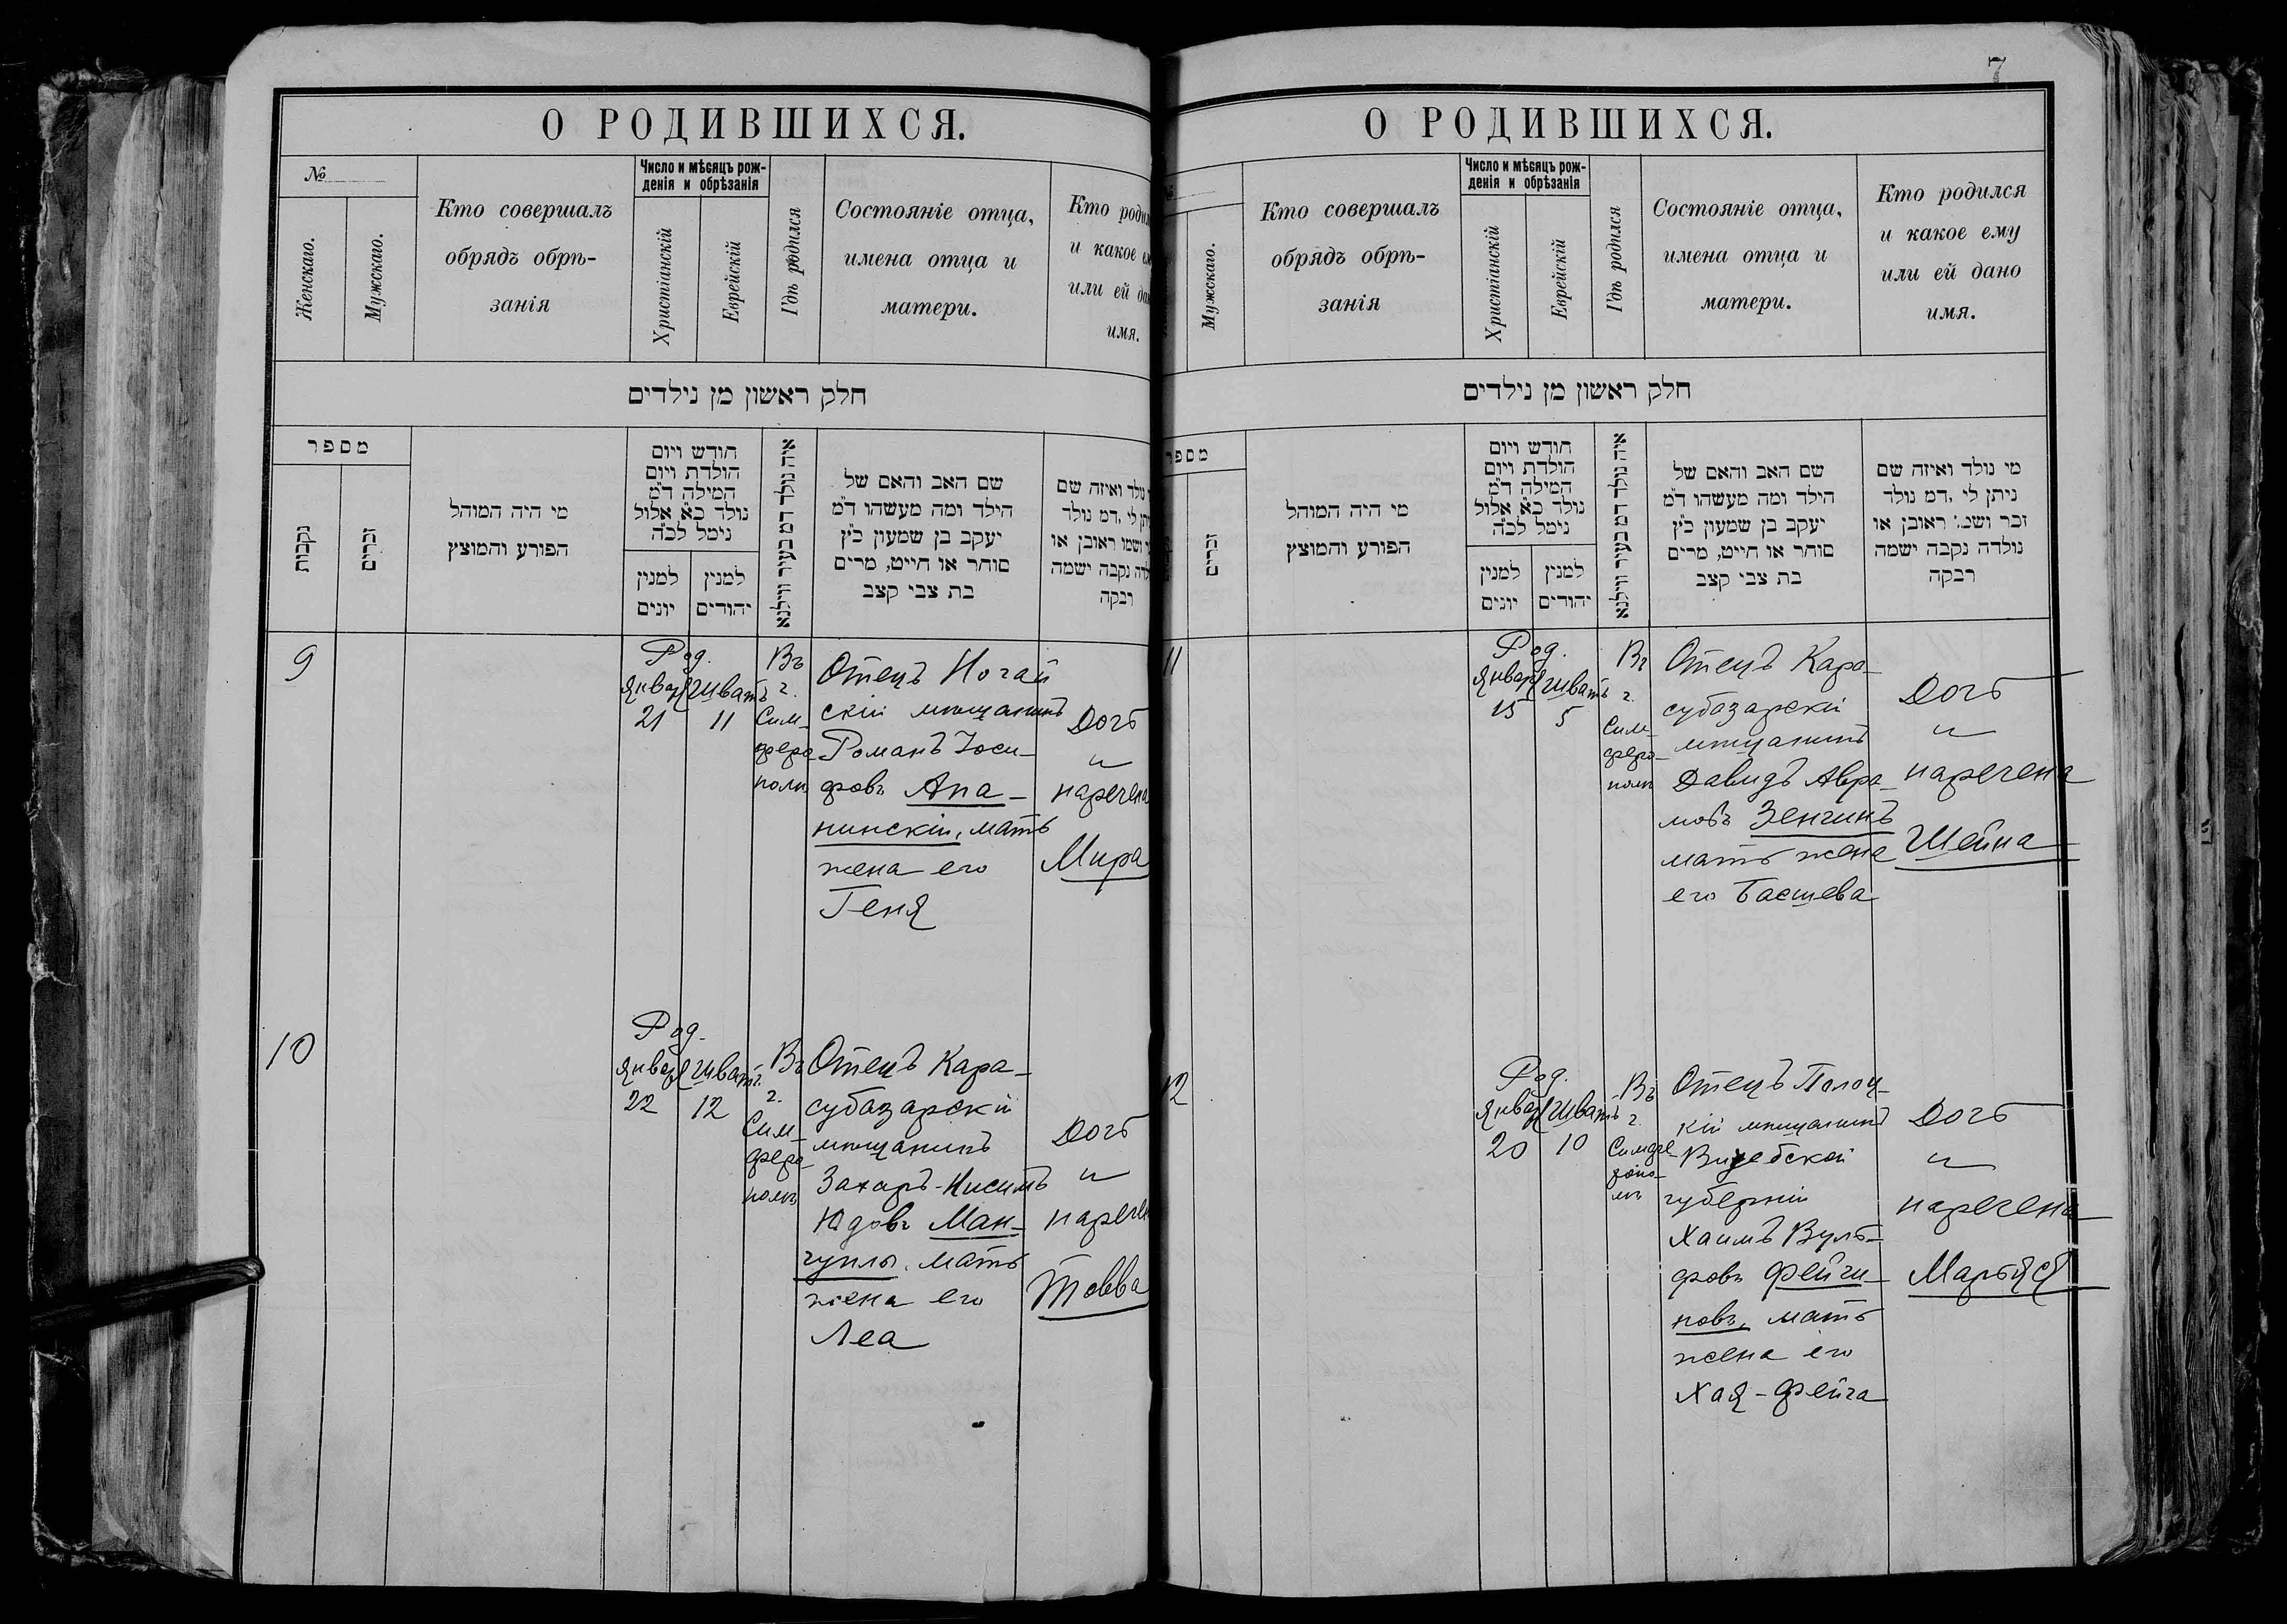 О РОДИВШИХСЯ.
№
Женскаго.
Мужскаго.
Кто совершалъ
обрядъ обрѣ-
занія
Число и мѣсяцъ рож-
денія и обрѣзанія
Христіанскій
Еврейскій
Гдѣ родился
Состояніе отца,
имена отца и
матери.
Кто роди
и какое
или ей да
имя.
חלק ראשון מן נילדים
מספר
נקבות
זכרים
מי היה המוהל
הפורע והמוצץ
חודש ויום
הולדת ויום
המילה ד״מ
נולד כ״א אלול
נימל לכ״ה
למנין
יונים
למנין
יהודים
איה נולד דמ בעיר ווילנא
שם האב והאם של
הילד ומה מעשהו ד״מ
יעקב בן שמעון כ״ץ
סוחר או חייט, מרים
בת צבי קצב
נולד ואיזה שם
תן לי, דמ נולד
ושמו ראובן או
לדה נקבה ישמה
רבקה
9
Род.
Январ
21
Шватъ
11
Въ
г.
Сим-
феро-
полѣ
Отецъ Ногай
скій мѣщанинъ
Романъ Іоси-
фовъ Ана-
нинскій, мать
жена его
Геня
Дочь
и
наречена
Мира
10
Род.
Январ
22
Шватъ
12
Въ
г.
Сим-
феро-
полѣ
Отецъ Кара-
субазарскій
мѣщанинъ
Захаръ-Нисимъ
Юдовъ Ман-
гуплы, мать
жена его
Леа
Дочь
и
наречен
Товва
7
О РОДИВШИХСЯ.
№
Мужскаго.
Кто совершалъ
обрядъ обрѣ-
занія
Число и мѣсяцъ рож-
денія и обрѣзанія
Христіанскій
Еврейскій
Гдѣ родился
Состояніе отца,
имена отца и
матери.
Кто родился
и какое ему
или ей дано
имя.
חלק ראשון מן נילדים
מספר
זכרים
מי היה המוהל
הפורע והמוצץ
חודש ויום
הולדת ויום
המילה ד״מ
נולד כ״א אלול
נימל לכ״ה
למנין
יונים
למנין
יהודים
איה נולד דמ בעיר ווילנא
שם האב והאם של
הילד ומה מעשהו ד״מ
יעקב בן שמעון כ״ץ
סוחר או חייט, מרים
בת צבי קצב
מי נולד ואיזה שם
ניתן לי, דמ נולד
זכר ושמו ראובן או
נולדה נקבה ישמה
רבקה
11
Род.
Январ
15
Шватъ
5
Въ
г.
Сим-
феро-
полѣ
Отецъ Кара-
субазарскій
мѣщанинъ
Давидъ Авра-
мовъ Зенгинъ
мать жена
его Басшева
Дочь
и
наречена
Шейна
12
Род.
Январ
20
Шватъ
10
Въ
г.
Симфе
ропо-
лѣ
Отецъ Полоц-
кій мѣщанинъ
Витебской
губерніи
Хаимъ Вуль-
фовъ Фейги-
новъ, мать
жена его
Хая-Фейга
Дочь
и
наречена
Марьяся